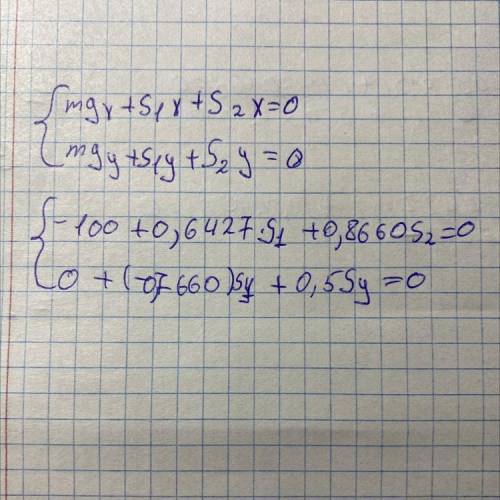 mgx+S1x+S2x=0
mgy+S1y+S2y=0
-100+0,6427·S1+0,8660S2=0
0+(-0,7660)Sy+0,5Sy=0